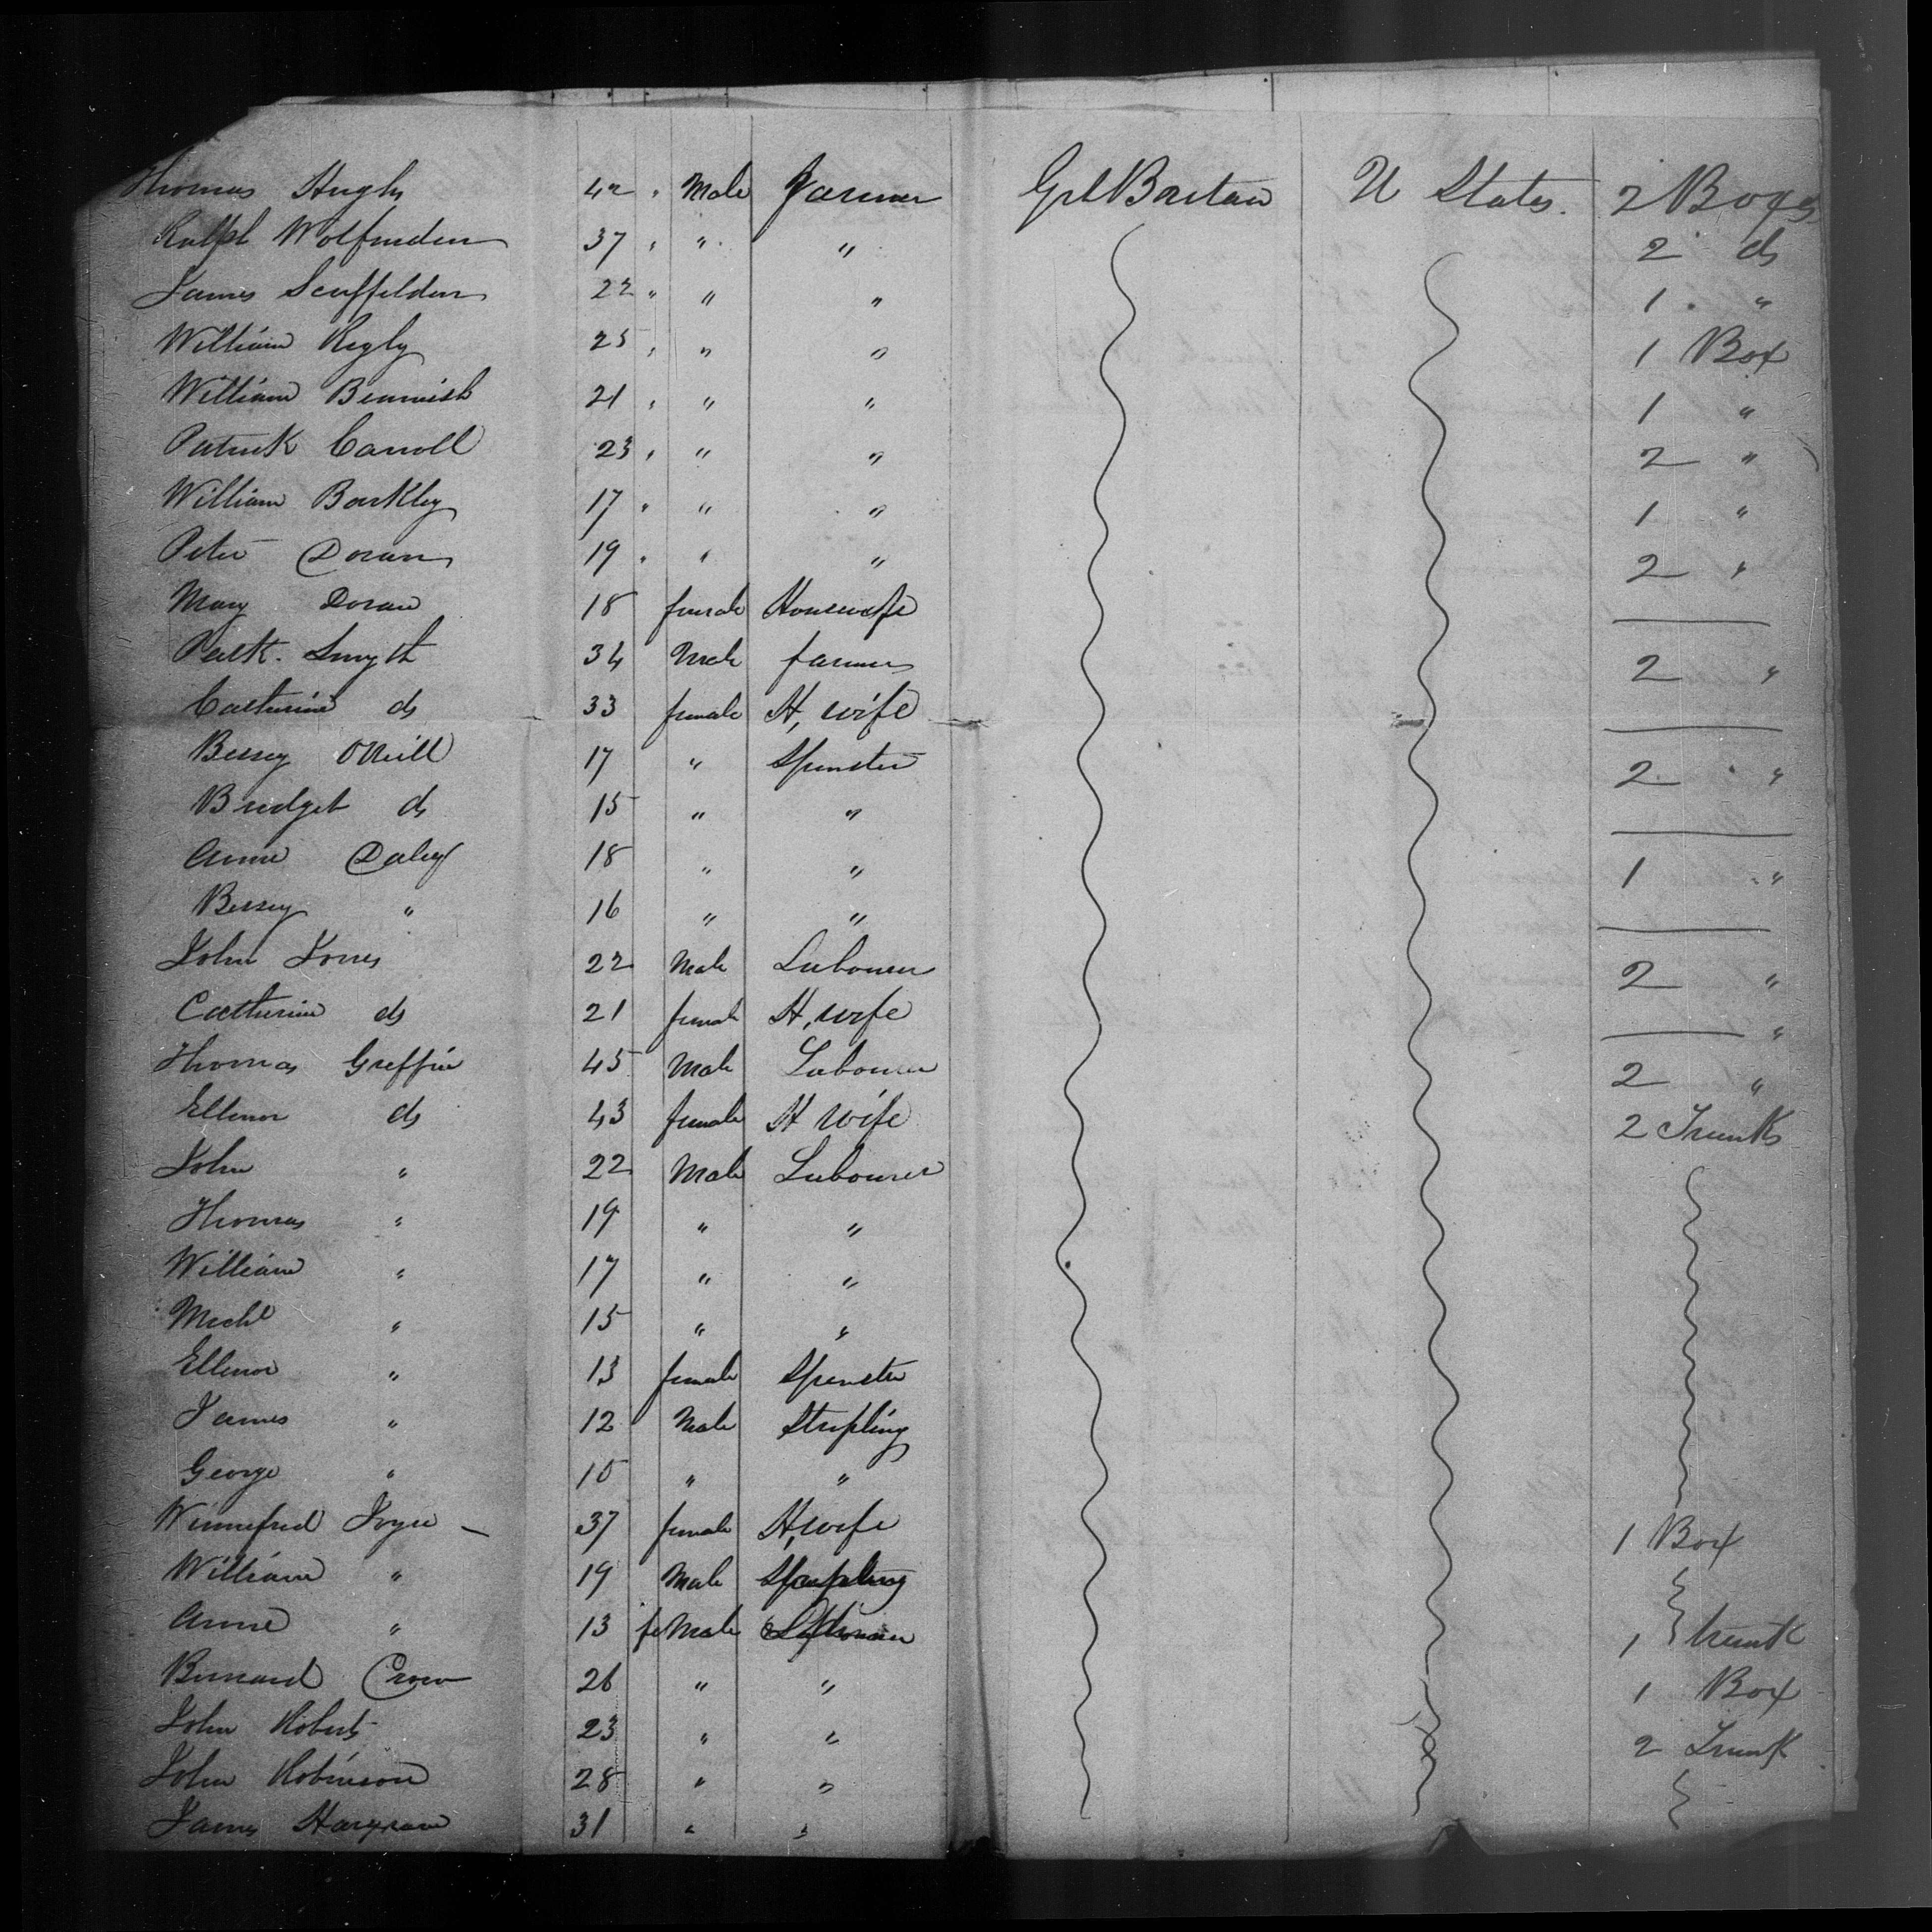 Thomas Hughs 42 " Male Farmer Grt Britain U States. 2 Boxes
Ralph Wolfenden 37 " " " 2 do
James Scuffelden 22 " " " 1 "
William Rigby 25 " " " 1 Box
William Benwish 21 " " " 1 "
Patrick Carroll 23 " " " 2 "
William Barkley 17 " " " 1 "
Peter Doran 19 " " " 2 "
Mary Doran 18 female Housewife —
Patk. Smyth 34 Male farmer 2 "
Catherine do 33 female H, wife —
Bessey ONeill 17 " Spinster 2 "
Bridget do 15 " " —
Anne Daley 18 " " 1 "
Bessey " 16 " " —
John Jones 22 Male Labourer 2 "
Catherine do 21 female H, wife — "
Thomas Griffin 45 Male Labourer 2 "
Ellenor do 43 female H wife 2 Trunks
John " 22 Male Labourer
Thomas " 19 " "
William " 17 " "
Michl " 15 " "
Ellenor " 13 female Spinster
James " 12 Male Stripling
George " 10 " "
Winnefred Joyce — 37 female H, wife 1 Box
William " 19 Male Stripling
Anne " 13 feMale 1 trunk
Bernard Crow 26 " " 1 Box
John Roberts 23 " " 2 Trunk
John Robinson 28 " "
James Hargrave 31 " "